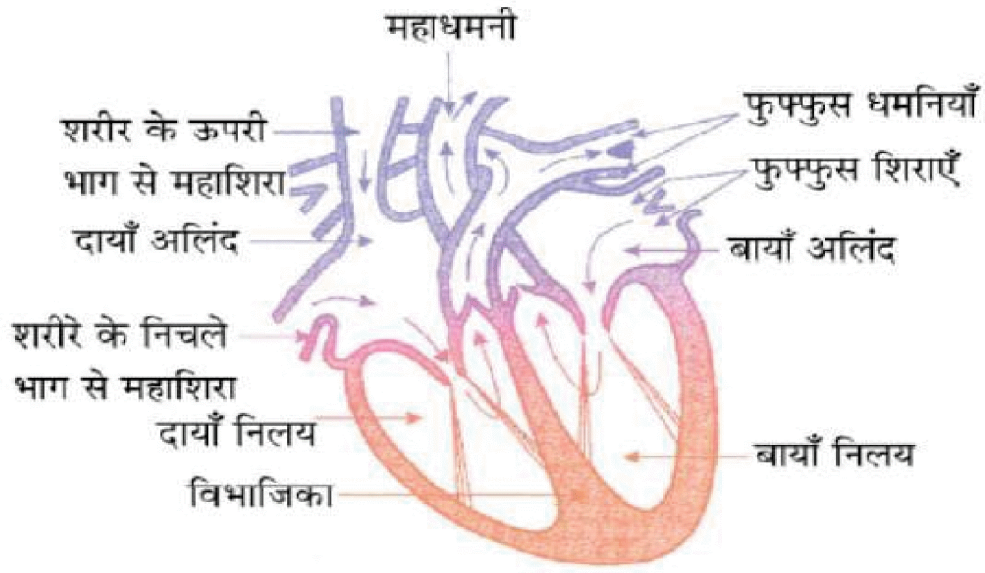 महाधमनी
शरीर के ऊपरी
भाग से महाशिरा
दायाँ अलिंद
शरीरे के निचले
भाग से महाशिरा
दायाँ निलय
विभाजिका
फुफ्फुस धमनियाँ
फुफ्फुस शिराएँ
बायाँ अलिंद
बायाँ निलय